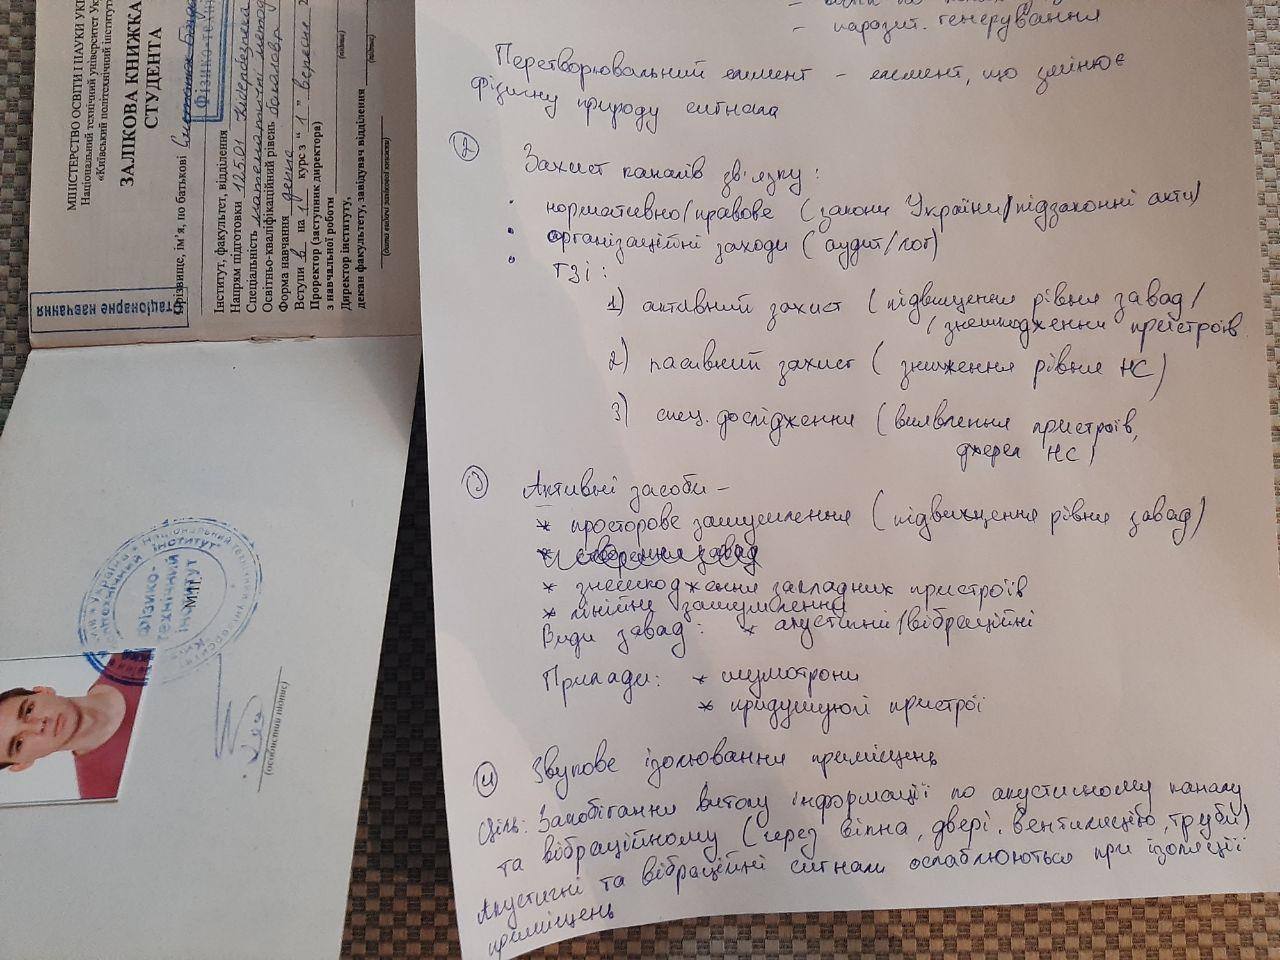 МІНІСТЕРСТВО ОСВІТИ І НАУКИ УКР
Національний технічний університет Ук
«Київський політехнічний інститу
ЗАЛІКОВА КНИЖКА
СТУДЕНТА
Прізвище, ім'я, по батькові
Фізико-техн
Інститут, факультет, відділення
Напрям підготовки 125.01 Кібербезпека
Спеціальність математичні метод
Освітньо-кваліфікаційний рівень бакалавр
Форма навчання денна
Вступи в на 1 курс з “ 1 ” вересня 2
Проректор (заступник директора)
з навчальної роботи
(підпис)
Директор інституту,
декан факультету, завідувач відділення
(підпис)
(дата видачі залікової книжки)
таціонарне навчання
Фізико-
технічний
інститут
М.П.
(особистий підпис)
- паразит. генерування
Перетворювальний елемент - елемент, що змінює
фізичну природу сигнала
2
Захист каналів зв'язку:
· нормативно/правове (закони України/підзаконні акти)
· організаційні заходи (аудит/лог)
· ТЗІ:
1) активний захист (підвищення рівня завад/
/знешкодження пристроїв
2) пасивний захист (зниження рівня НС)
3) спец. дослідження (виявлення пристроїв,
джерел НС)
3 Активні засоби -
* просторове зашумлення (підвищення рівня завад)
* знешкодження закладних пристроїв
* лінійне зашумлення
Види завад: * акустичні/вібраційні
Прилади: * шумотрони
* придушуюі пристрої
4 Звукове ізолювання приміщень
Ціль: Запобігання витоку інформації по акустичному каналу
та вібраційному (через вікна, двері, вентиляцію, труби)
Акустичні та вібраційні сигнали ослаблюються при ізоляції
приміщень